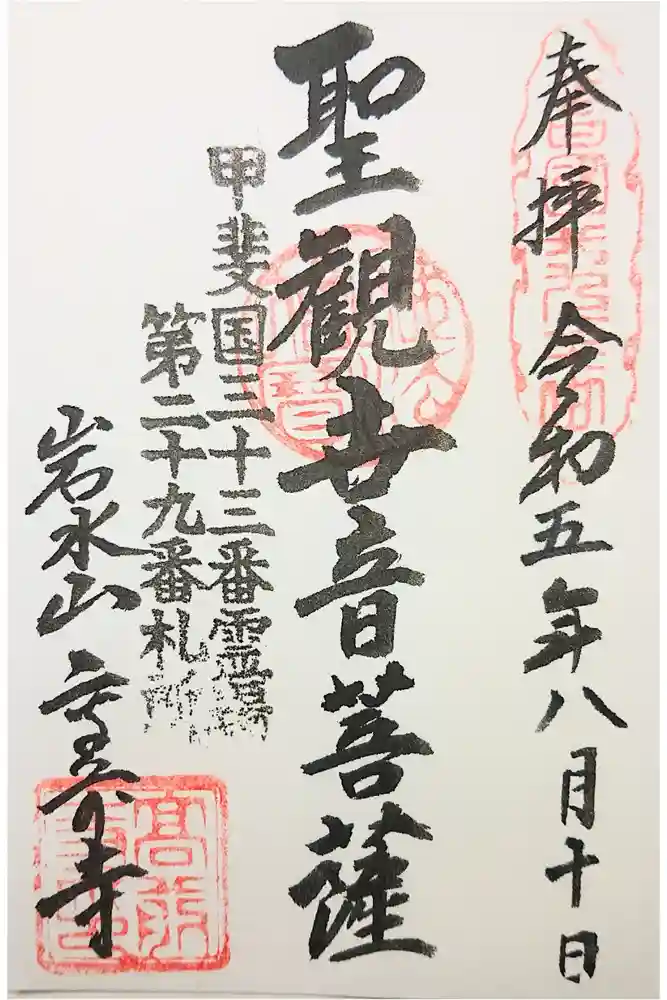 奉拝 令和五年八月十日
聖観世音菩薩
甲斐国三十三番霊場
第二十九番札所
岩水山 寺